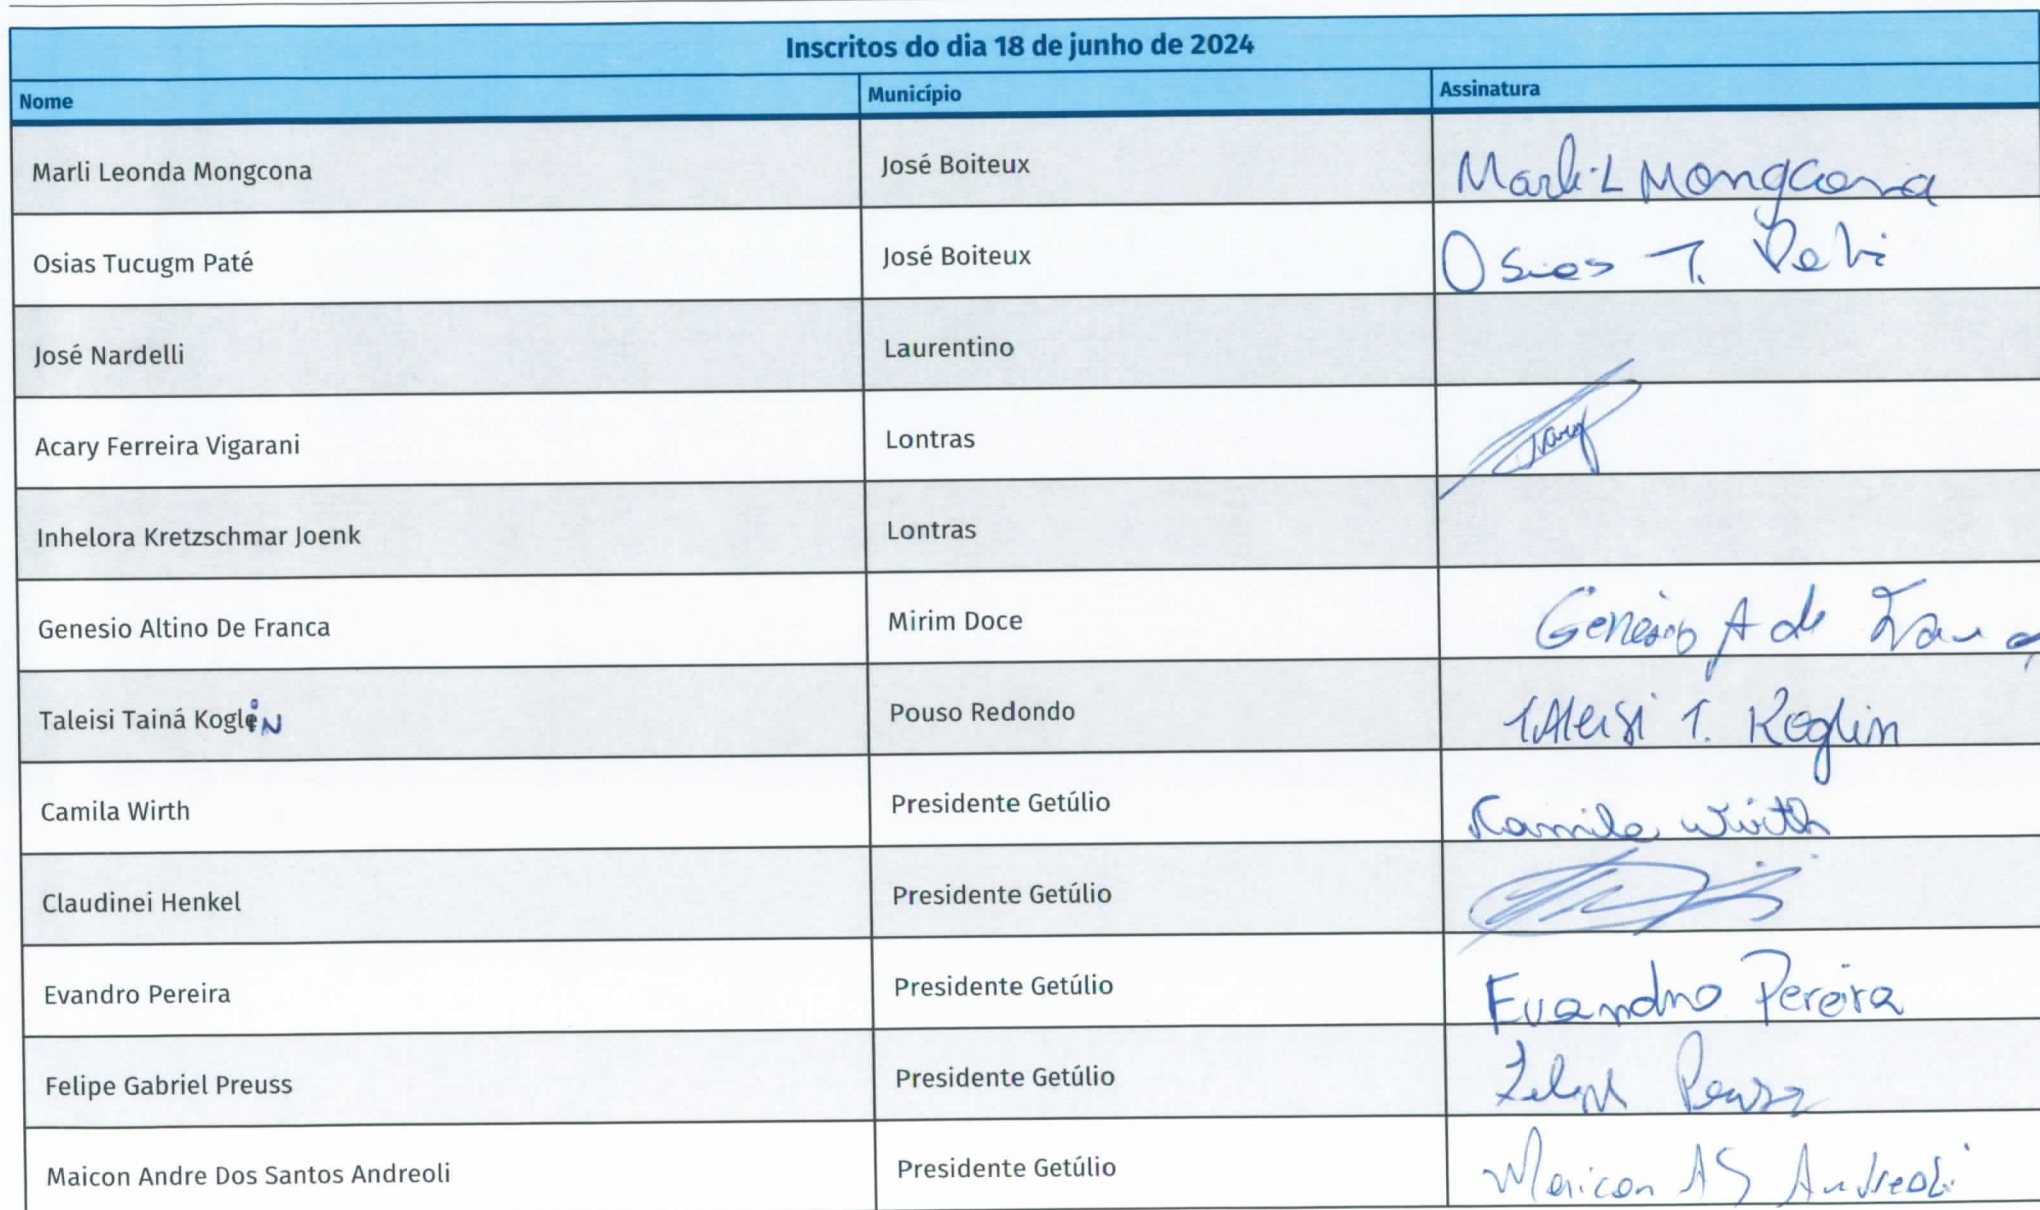 Inscritos do dia 18 de junho de 2024
Nome Município Assinatura
Marli Leonda Mongcona José Boiteux Marli L Mongcona
Osias Tucugm Paté José Boiteux Osias T.
José Nardelli Laurentino
Acary Ferreira Vigarani Lontras
Inhelora Kretzschmar Joenk Lontras
Genesio Altino De Franca Mirim Doce Genesio A de
Taleisi Tainá KogliN Pouso Redondo TAleisi T. Koglin
Camila Wirth Presidente Getúlio Kamila Wirth
Claudinei Henkel Presidente Getúlio
Evandro Pereira Presidente Getúlio Evandro Pereira
Felipe Gabriel Preuss Presidente Getúlio Felipe
Maicon Andre Dos Santos Andreoli Presidente Getúlio Maicon AS Andreoli